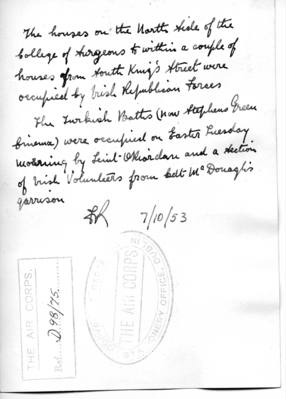 The houses on the North side of the
College of Surgeons to within a couple of
houses from South King's Street were
occupied by Irish Republican Forces
The Turkish Baths (now Stephens Green
Cinema) were occupied on Easter Tuesday
morning by Lieut. O'Riordan and a section
of Irish Volunteers from Cdt McDonagh's
garrison
7/10/53
THE AIR CORPS.
Ref. D 98/75.
THE AIR CORPS